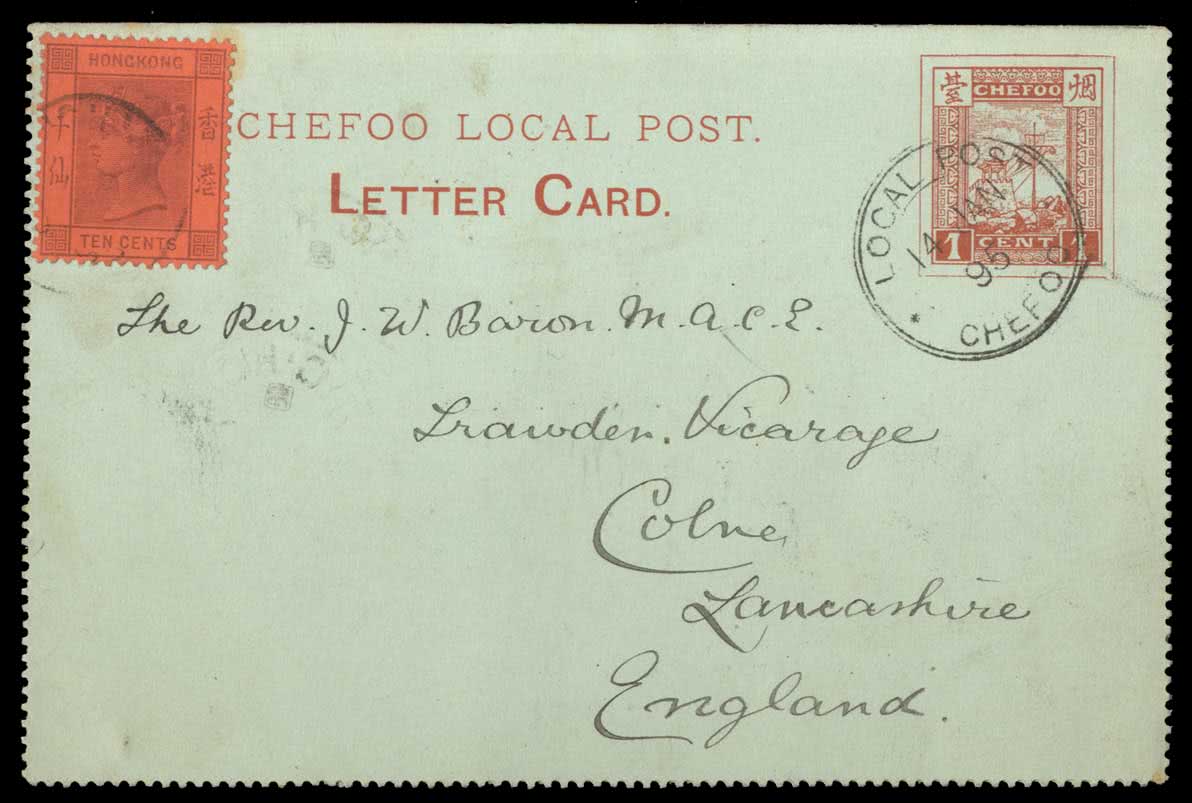 HONGKONG
TEN CENTS
CHEFOO LOCAL POST.
LETTER CARD.
臺 CHEFOO 烟
1 CENT 1
LOCAL POST
14 JAN
95
* CHEFOO
The Rev. J. W. Baron. M.A.C.E.
Trawden. Vicarage
Colne
Lancashire
England.